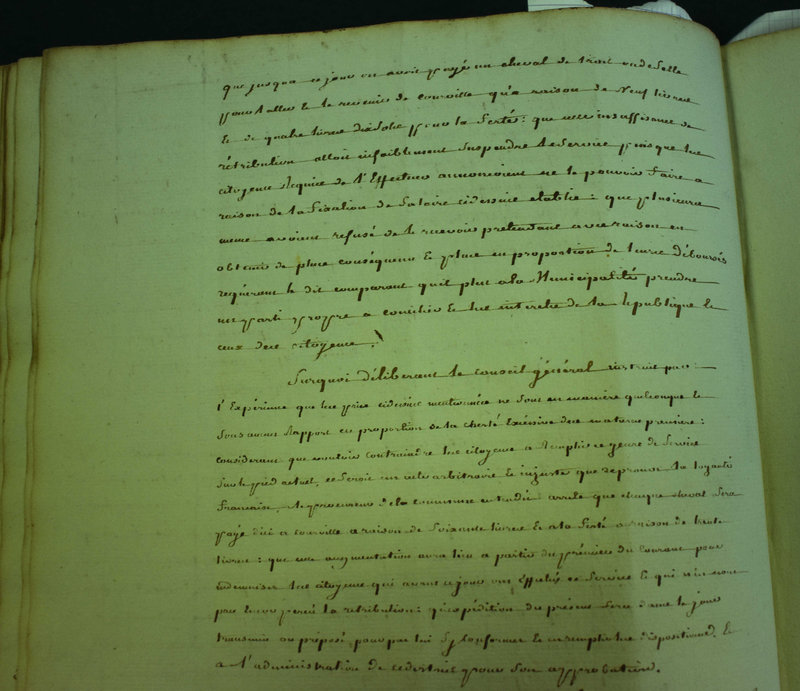 que jusqua ce jour on avoit payé un cheval de trait ou de selle
pour l'aller & le revenir de courville qu'a raison de Neuf livres
& de quatre livres dix sols pour la Ferté: que cette insuffisance de
rétribution alloit infailliblement suspendre le Service puisque les
citoyens Requis de l'Effectuer annoncoient ne le pouvoir faire a
raison de la fixation de Salaire cidessus etablie: que plusieurs
meme avoient refusé de le recevoir pretendant avec raison en
obtenir de plus conséquens & plus en proportion de leurs débourés
requérant le dit comparant qu'il plut a la Municipalité prendre
un parti propre a concilier & les interets de la republique &
ceux des citoyens.
Surquoi déliberant le conseil général instruit par
l'Expérience que les prix cidessus mentionnés ne sont en maniere quelconque &
sous aucun Rapport en proportion de la cherté Excéssive des matieres premiere:
considerant que vouloir contraindre les citoyens a Remplir ce genre de Service
sur le pied actuel, ce Seroit un acte arbitraire & injuste que reprouve la loyauté
francaise, le procureur de la commune entendu arrete que chaque cheval Sera
payé d'ici a courville a raison de Soixante livres & a la Ferté a raison de trente
livres: que cette augmentation aura lieu a partir du prémier du Courant pour
indemniser les citoyens qui avant ce jour ont Effectué ce Service & qui n'en ont
pas encor perçu la retribution: qu'expédition du présent Sera dans le jour
transmis au préposé pour par lui S'y conformer & en remplir les dispositions. &
a l'administration de ce district pour Son approbation.